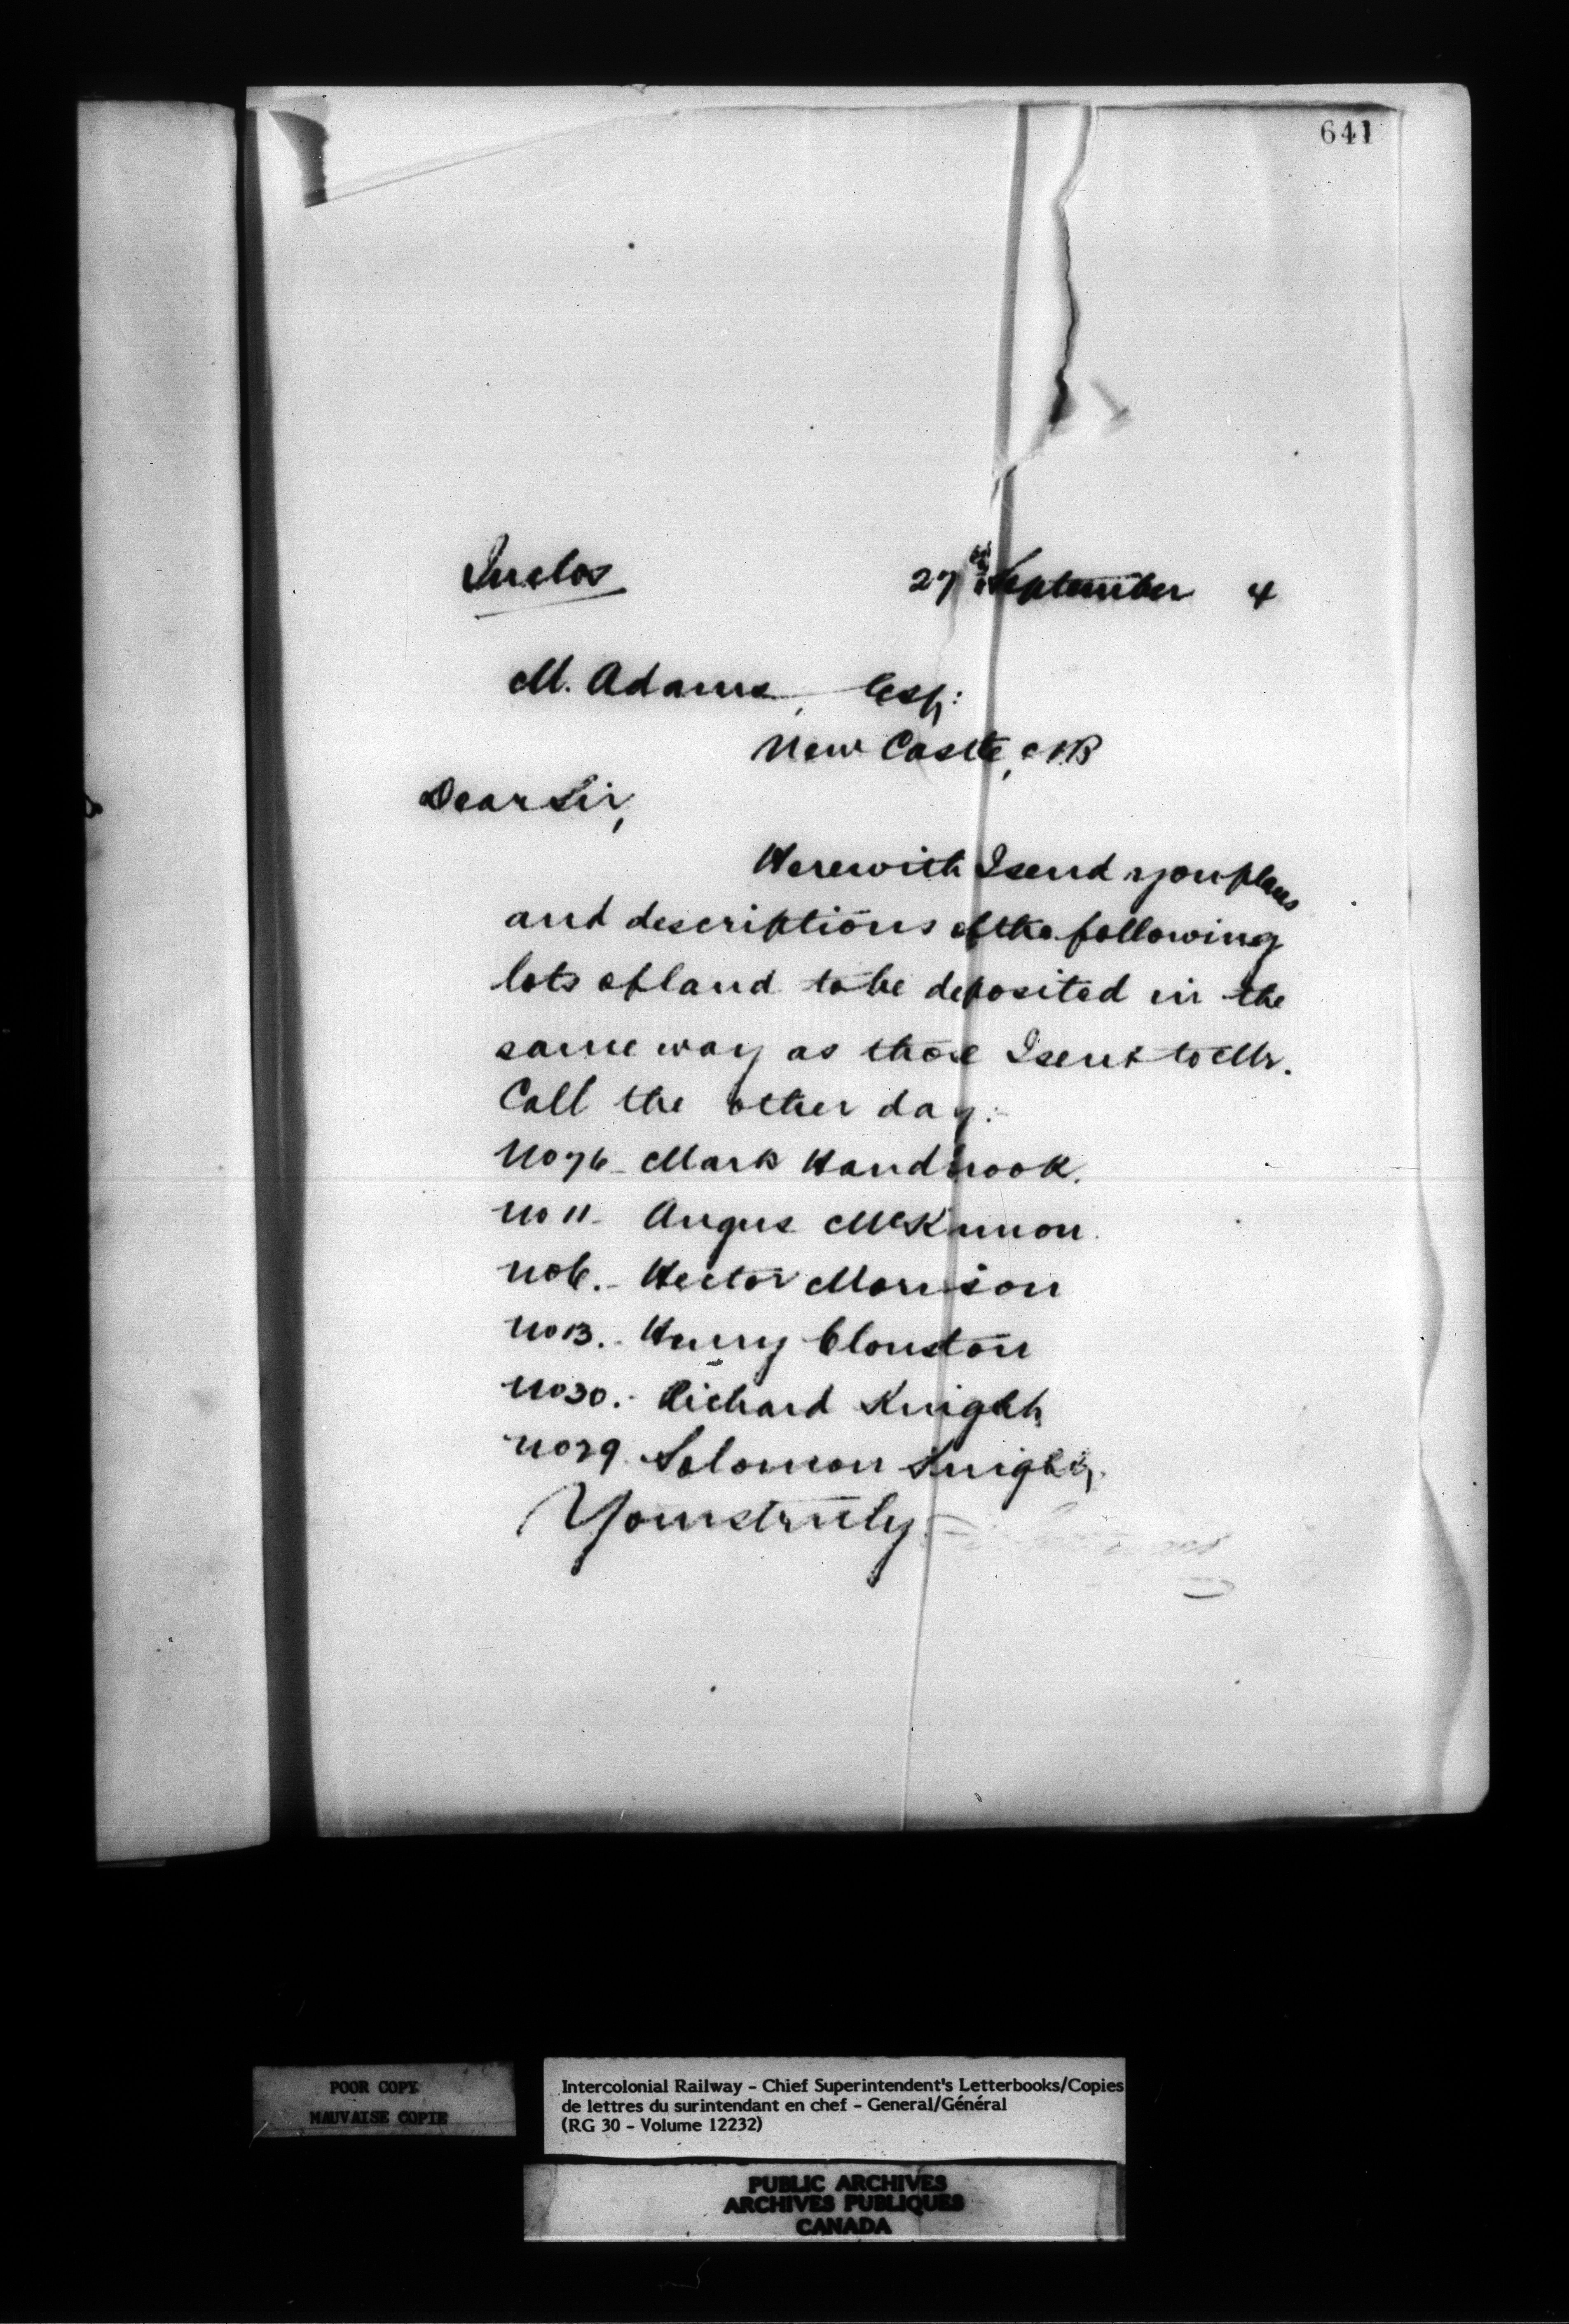 641
Inclos
27th September 4
M. Adams, Esq:
New Castle, N.B
Dear Sir,
Herewith I send you plans
and descriptions of the following
lots of land to be deposited in the
same way as those I sent to Mr.
Call the other day:-
No 76 - Mark Handhook.
No 11 - Angus McKinnon.
No 6. - Hector Morrison
No 13. - Henry Clouston
No 30. - Richard Knight,
No 29. Solomon Knight,
Yours truly
POOR COPY
MAUVAISE COPIE
Intercolonial Railway - Chief Superintendent's Letterbooks/Copies
de lettres du surintendant en chef - General/Général
(RG 30 - Volume 12232)
PUBLIC ARCHIVES
ARCHIVES PUBLIQUES
CANADA